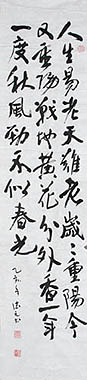 人生易老天難老歲〻重陽今
又重陽戰地黃花分外香一年
一度秋風勁不似春光
乙亥年